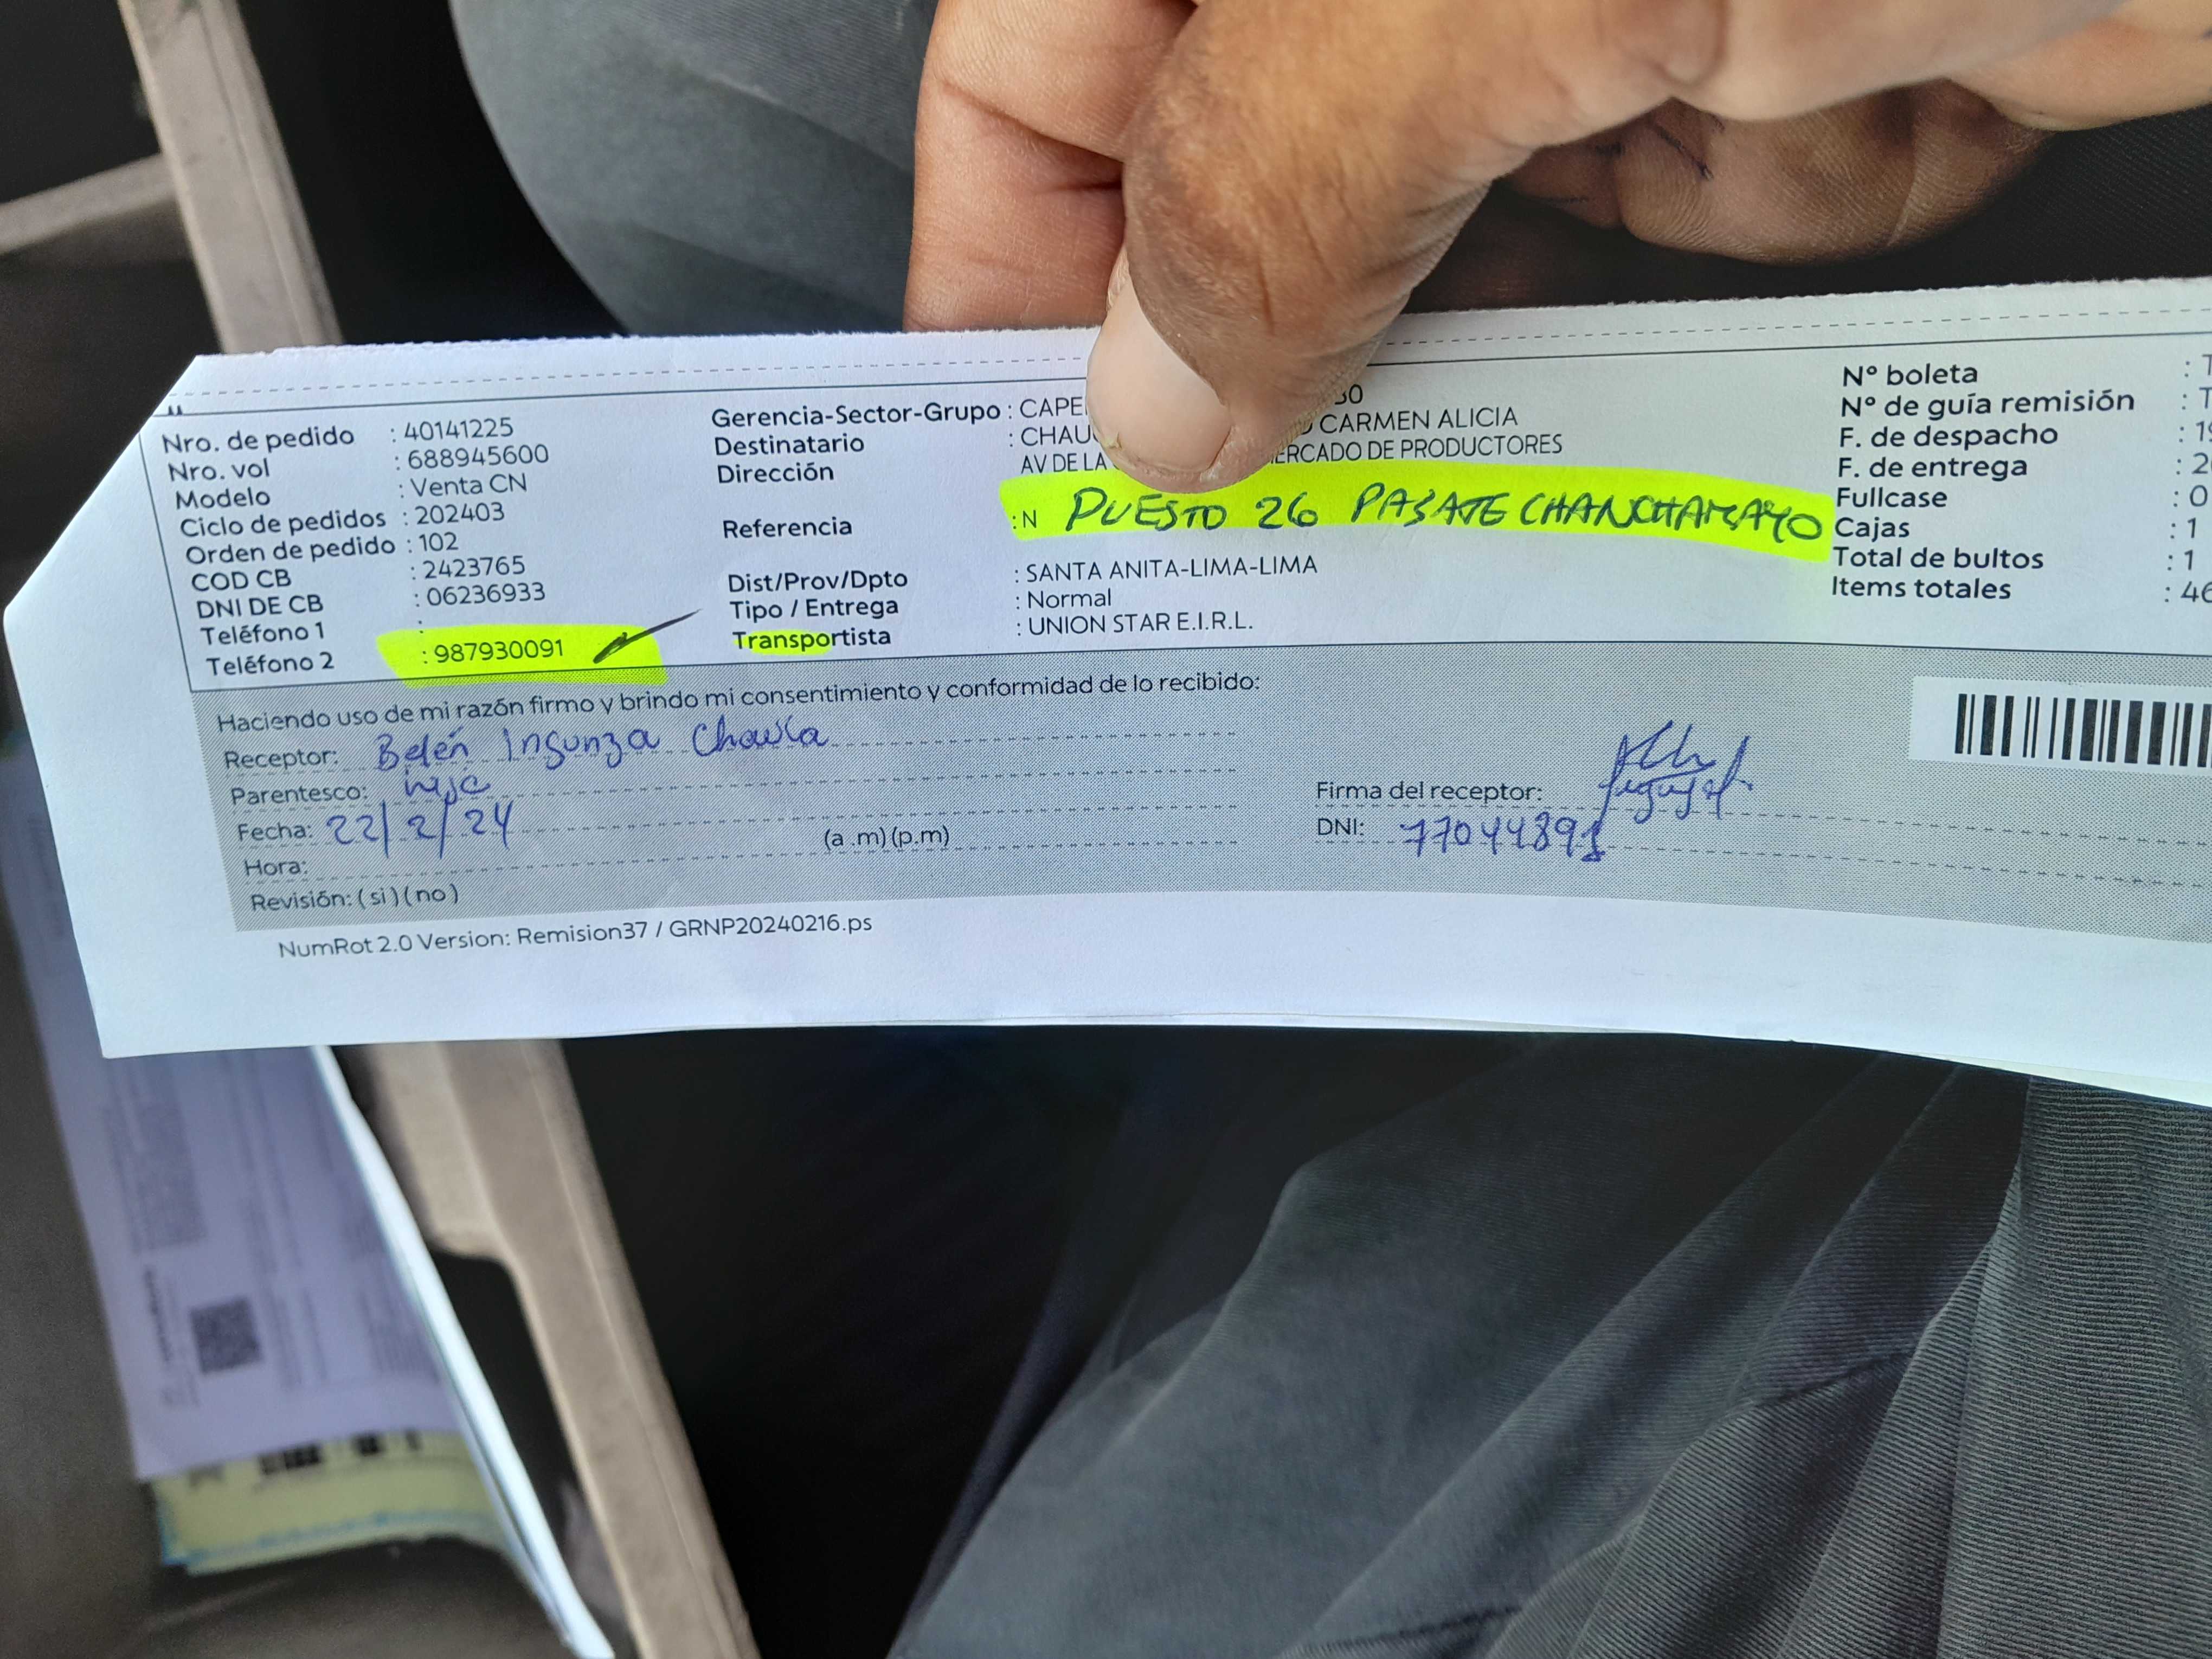 Nro. de pedido : 40141225
Nro. vol : 688945600
Modelo : Venta CN
Ciclo de pedidos : 202403
Orden de pedido : 102
COD CB : 2423765
DNI DE CB : 06236933
Teléfono 1 :
Teléfono 2 : 987930091
Gerencia-Sector-Grupo : CAPE
Destinatario : CHAU CARMEN ALICIA
Dirección AV DE LA ERCADO DE PRODUCTORES
Referencia : N PUESTO 26 PASAJE CHANCHAMAYO
Dist/Prov/Dpto : SANTA ANITA-LIMA-LIMA
Tipo / Entrega : Normal
Transportista : UNION STAR E.I.R.L.
Nº boleta : T
Nº de guía remisión : T
F. de despacho : 19
F. de entrega : 2
Fullcase : 0
Cajas : 1
Total de bultos : 1
Items totales : 46
Haciendo uso de mi razón firmo y brindo mi consentimiento y conformidad de lo recibido:
Receptor: Belén Insunza
Parentesco: hija
Fecha: 22/2/24
Hora: (a .m) (p.m)
Revisión: ( si ) ( no )
Firma del receptor:
DNI: 77044891
NumRot 2.0 Version: Remision37 / GRNP20240216.ps